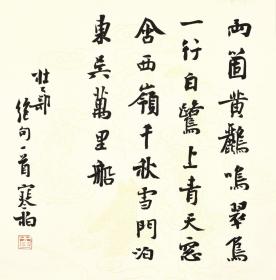 兩箇黃鸝鳴翠柳
一行白鷺上青天窓
含西嶺千秋雪門泊
東吳萬里船
杜工部
絕句一首寒柏